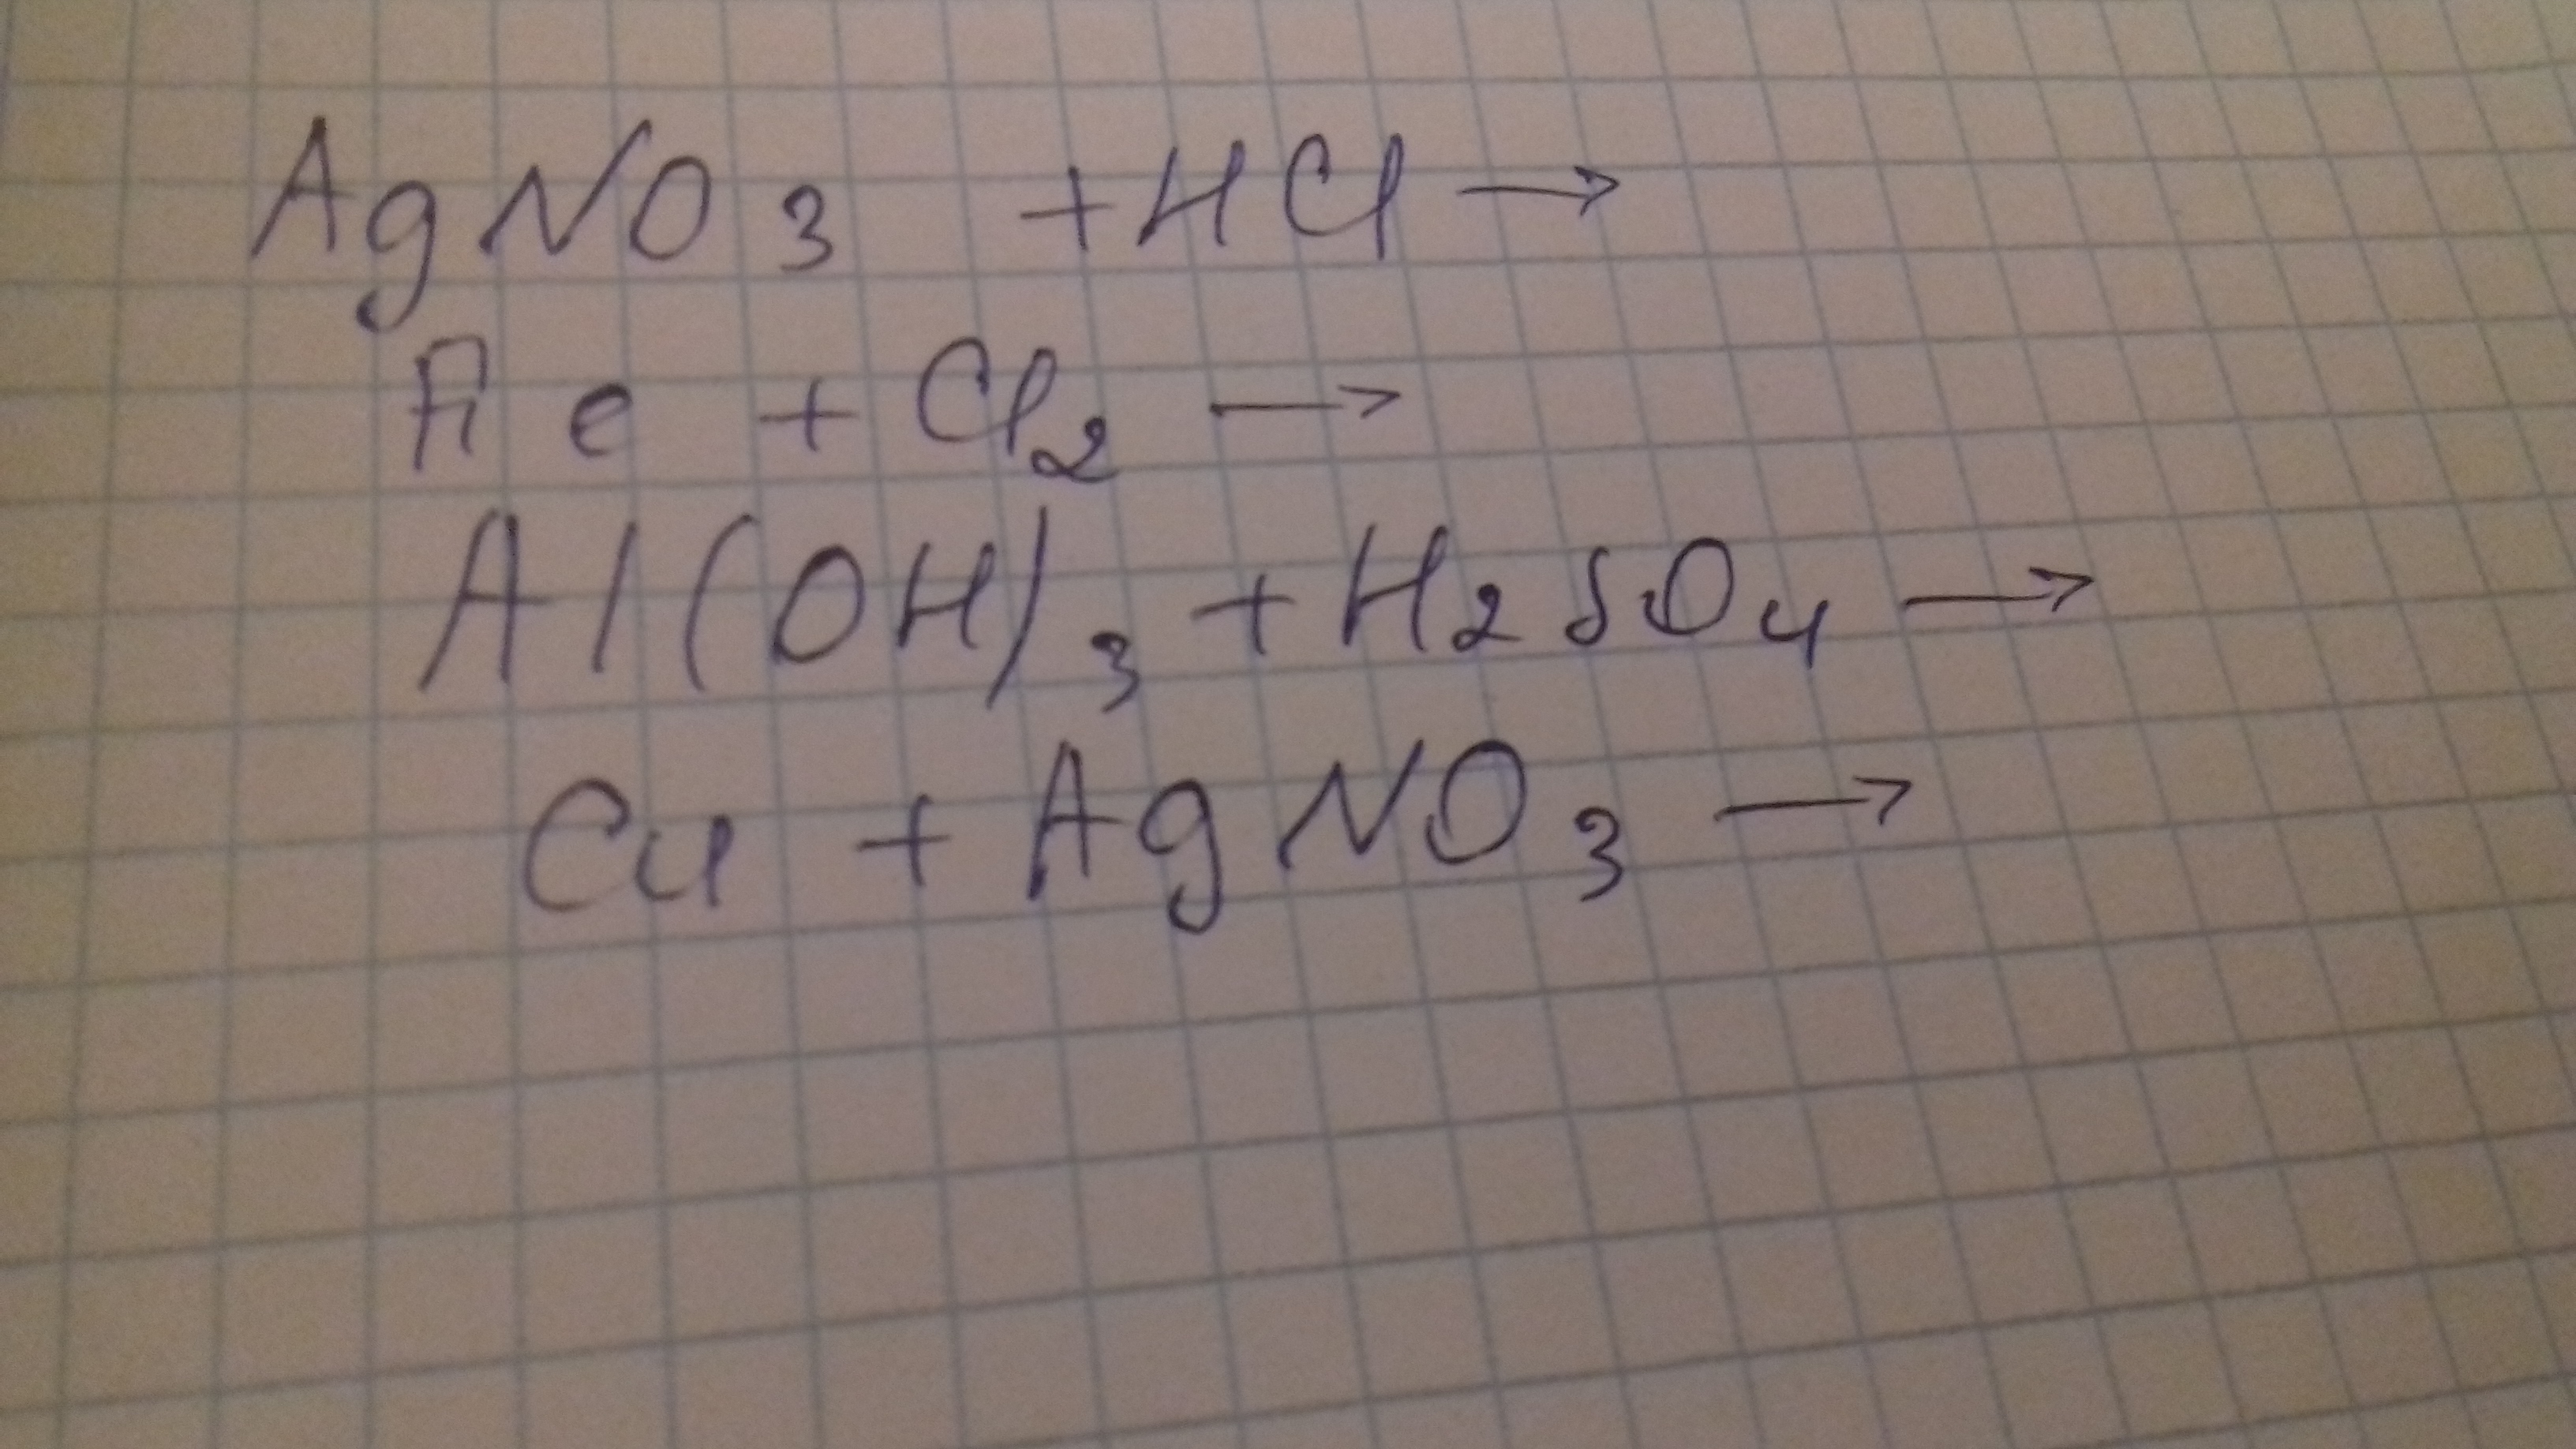 AgNO3 + HCl →
Fe + Cl2 →
Al(OH)3 + H2SO4 →
Cu + AgNO3 →